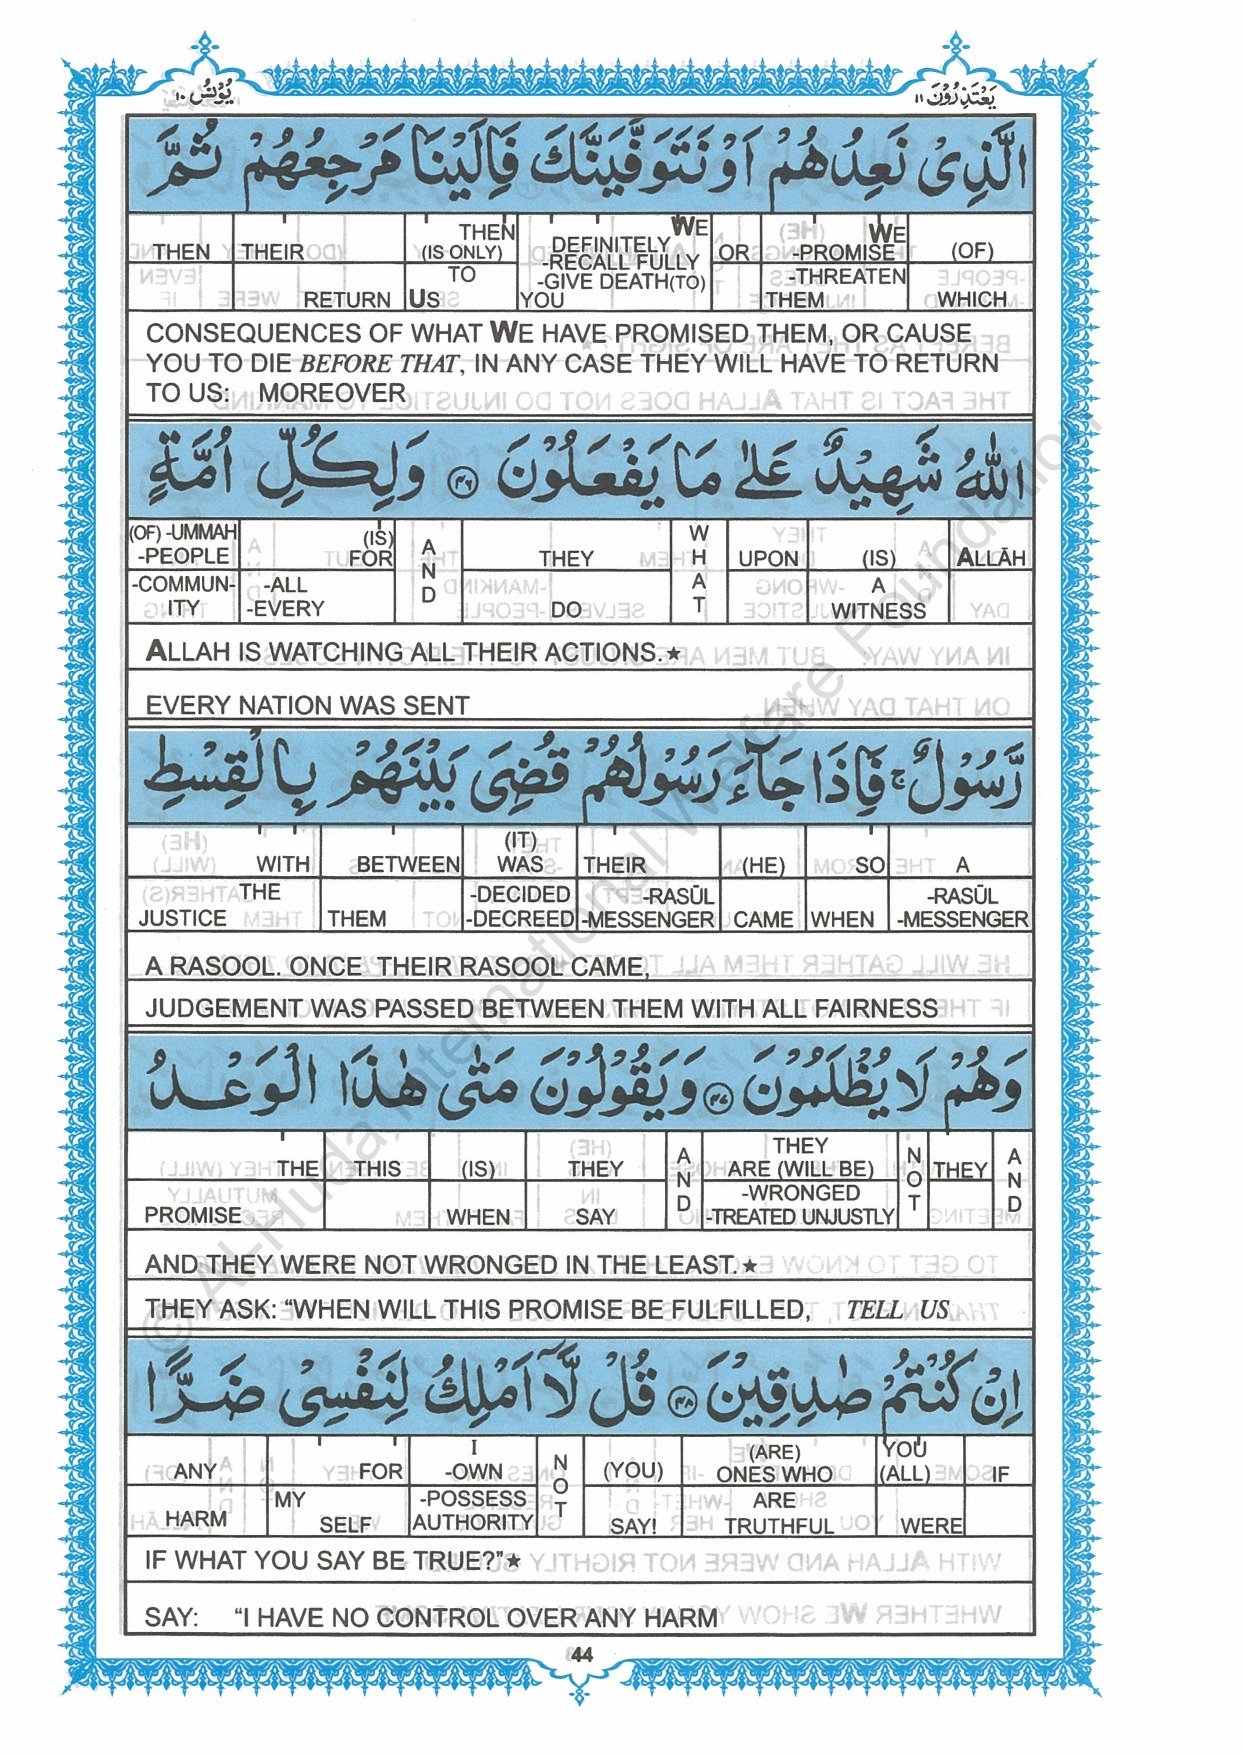 يَعْتَذِرُوْنَ ١١
يُوْنُسُ ١٠
الَّذِیْ نَعِدُهُمْ اَوْ نَتَوَفَّیَنَّكَ فَاِلَیْنَا مَرْجِعُهُمْ ثُمَّ
THEN THEIR THEN (IS ONLY) DEFINITELY WE -RECALL FULLY OR WE -PROMISE (OF)
RETURN TO US -GIVE DEATH(TO) YOU -THREATEN THEM WHICH
CONSEQUENCES OF WHAT WE HAVE PROMISED THEM, OR CAUSE
YOU TO DIE BEFORE THAT, IN ANY CASE THEY WILL HAVE TO RETURN
TO US: MOREOVER
اللّٰهُ شَهِیْدٌ عَلٰی مَا یَفْعَلُوْنَ ۴۶ وَلِكُلِّ اُمَّةٍ
(OF) -UMMAH -PEOPLE (IS) FOR AND THEY WHAT UPON (IS) ALLĀH
-COMMUN-ITY -ALL -EVERY DO A WITNESS
ALLAH IS WATCHING ALL THEIR ACTIONS.★
EVERY NATION WAS SENT
رَّسُوْلٌ ۚ فَاِذَا جَآءَ رَسُوْلُهُمْ قُضِیَ بَیْنَهُمْ بِالْقِسْطِ
WITH BETWEEN (IT) WAS THEIR (HE) SO A
THE JUSTICE THEM -DECIDED -DECREED -RASŪL -MESSENGER CAME WHEN -RASŪL -MESSENGER
A RASOOL. ONCE THEIR RASOOL CAME,
JUDGEMENT WAS PASSED BETWEEN THEM WITH ALL FAIRNESS
وَهُمْ لَا یُظْلَمُوْنَ ۴۷ وَیَقُوْلُوْنَ مَتٰی هٰذَا الْوَعْدُ
THE THIS (IS) THEY AND THEY ARE (WILL BE) NOT THEY AND
PROMISE WHEN SAY -WRONGED -TREATED UNJUSTLY
AND THEY WERE NOT WRONGED IN THE LEAST.★
THEY ASK: “WHEN WILL THIS PROMISE BE FULFILLED, TELL US
اِنْ كُنْتُمْ صٰدِقِیْنَ ۴۸ قُلْ لَّاۤ اَمْلِكُ لِنَفْسِیْ ضَرًّا
ANY FOR I -OWN NOT (YOU) (ARE) ONES WHO YOU (ALL) IF
HARM MY SELF -POSSESS AUTHORITY SAY! ARE TRUTHFUL WERE
IF WHAT YOU SAY BE TRUE?”★
SAY: “I HAVE NO CONTROL OVER ANY HARM
44
© Al-Huda International Welfare Foundation